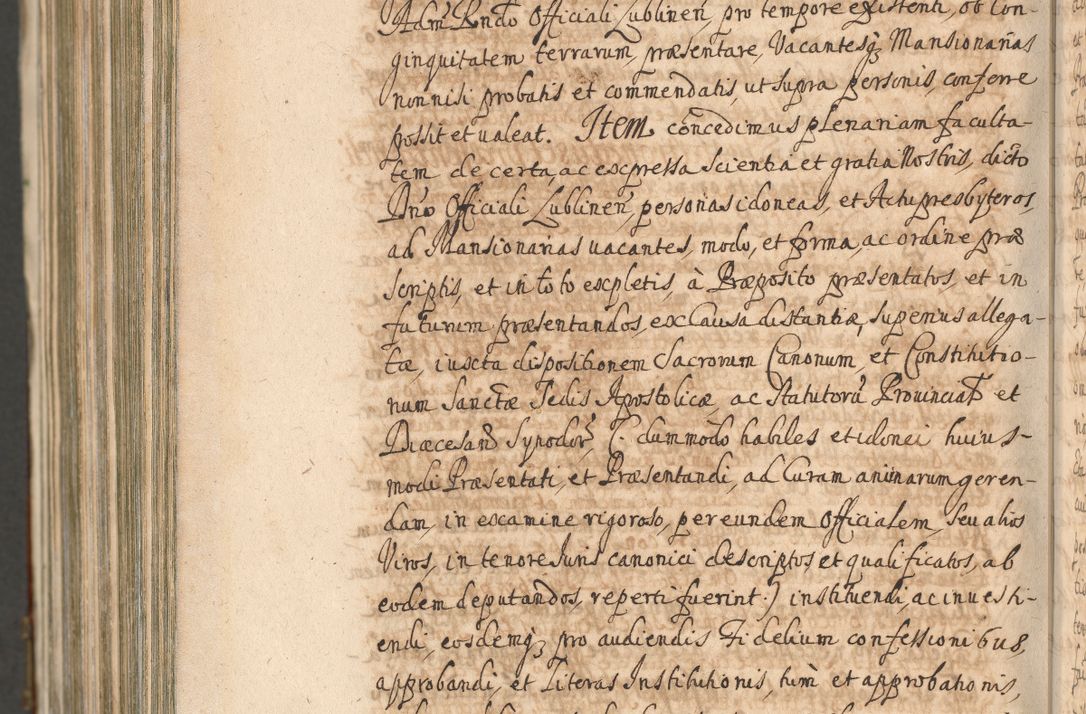 Adm Rndo Officiali Lublinen, pro tempore existenti, ob lon-
ginquitatem terrarum, præsentare, Vacantesq; Mansionarias
nonnisi probatis et commendatis, ut supra personis, conferre
possit et ualeat. Item concedimus plenariam faculta-
tem de certa, ac expressa scientia et gratia Nostris, dicto
Dno Officiali Lublinen, personas idoneas, et Actu presbyteros,
ad Mansionarias uacantes, modo, et forma, ac ordine præ
scriptis, et in toto expletis, à Præposito præsentatos, et in
futurum præsentandos, ex clausa distantiæ, superius allega-
tæ, iuxta dispositionem Sacrorum Canonum, et Constitutio-
num Sanctæ Sedis Apostolicæ, ac Statutorũ Prouincial et
Diæcesan Synodor, (. dummodo habiles et idonei huius-
modi Præsentati, et Præsentandi, ad Curam animarum geren-
dam, in examine rigoroso, per eundem Officialem, seu alios
Viros, in tenore Juris canonici descriptos, et qualificatos, ab
eodem deputandos, reperti fuerint .) instituendi, ac inuesti-
endi, eosdemq; pro audiendis Fidelium confessionibus,
approbandi, et Literas Institutionis, tum et approbationis,